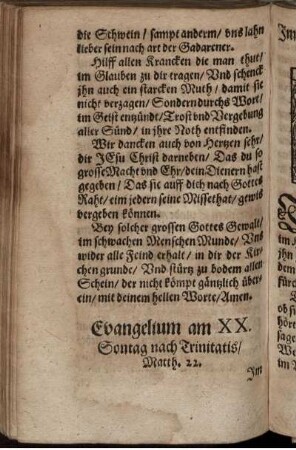 die Schwein/ sampt anderm/ vns lahn
lieber sein nach art der Gadarener.
Hilff allen Krancken die man thut/
im Glauben zu dir tragen/ Vnd schenck
jhn auch ein starcken Muth/ damit sie
nicht verzagen/ Sondern durchs Wort/
im Geist entzündt/ Trost vnd Vergebung
aller Sünd/ in jhre Noth entfinden.
Wir dancken auch von Hertzen sehr/
dir JEsu Christ darneben/ Das du so
grosse Macht vnd Ehr/ dein Dienern hast
gegeben/ Das sie auff dich nach Gottes
Raht/ eim jedern seine Missethat/ gewis
vergeben können.
Bey solcher grossen Gottes Gewalt/
im schwachen Menschen Munde/ Vns
wider alle Feind erhalt/ in dir der Kir-
chen grunde/ Vnd stürtz zu bodem allen
Schein/ der nicht kömpt gäntzlich über-
ein/ mit deinem hellen Worte/ Amen.
Evangelium am XX.
Sontag nach Trinitatis/
Matth. 22.
Im